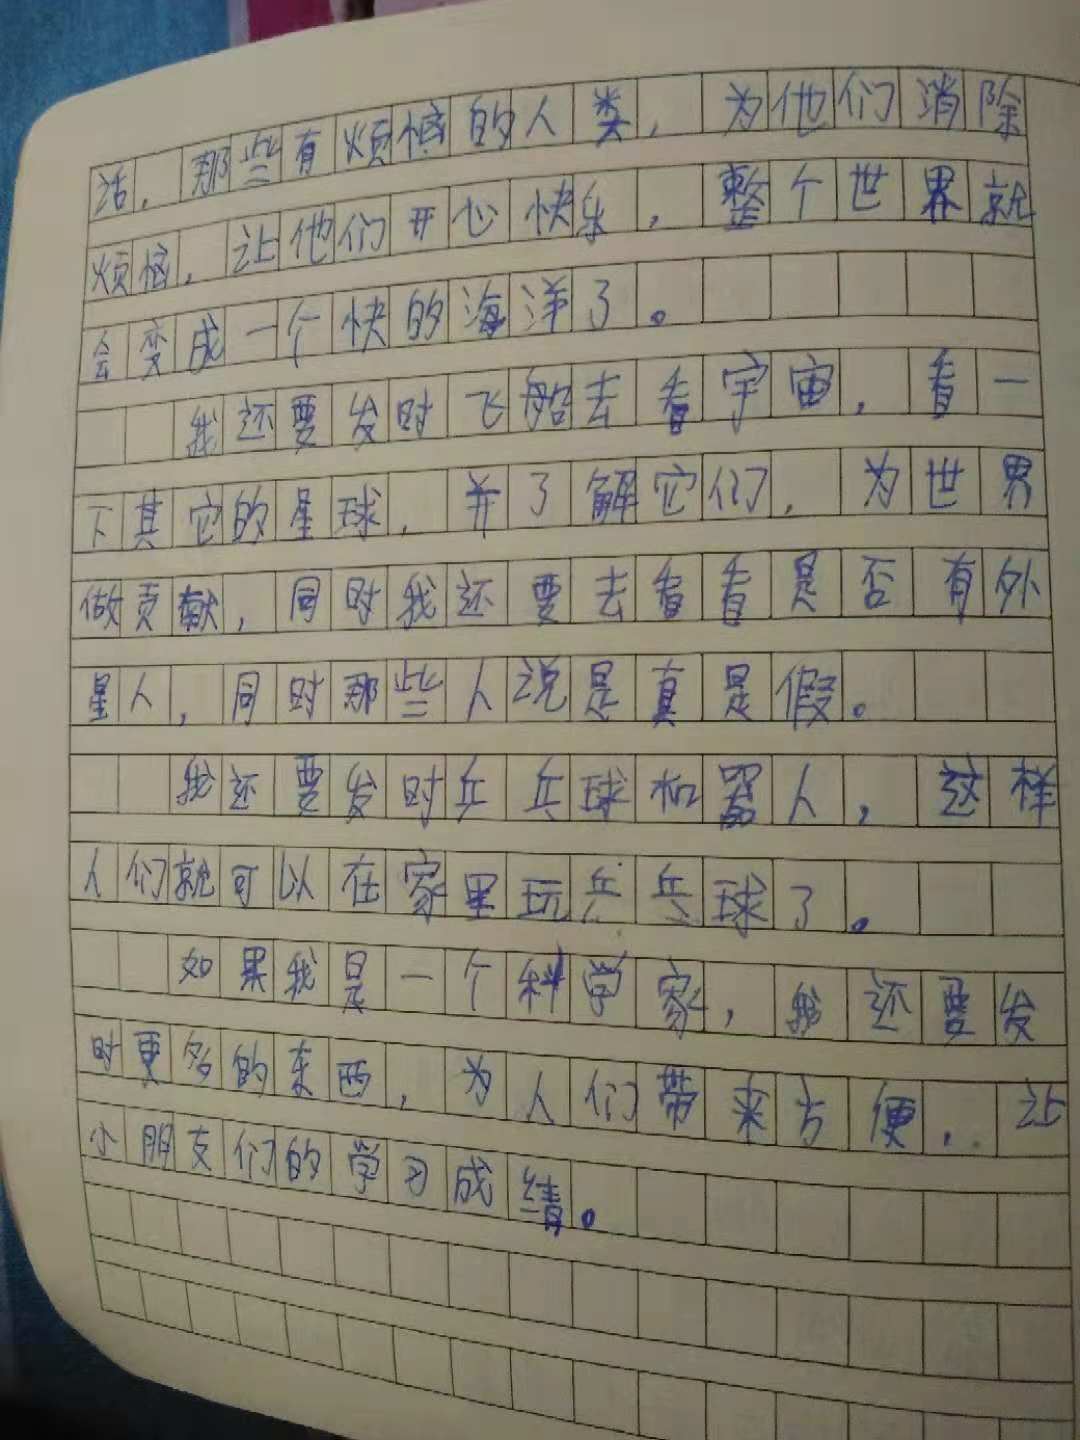 活，那些有烦恼的人类，为他们消除
烦恼，让他们开心快乐，整个世界就
会变成一个快的海洋了。
我还要发时飞船去看宇宙，看一
下其它的星球，并了解它们，为世界
做贡献，同时我还要去看看是否有外
星人，同时那些人说是真是假。
我还要发时乒乓球机器人，这样
人们就可以在家里玩乒乓球了。
如果我是一个科学家，我还要发
时更多的东西，为人们带来方便，让
小朋友们的学习成绩。